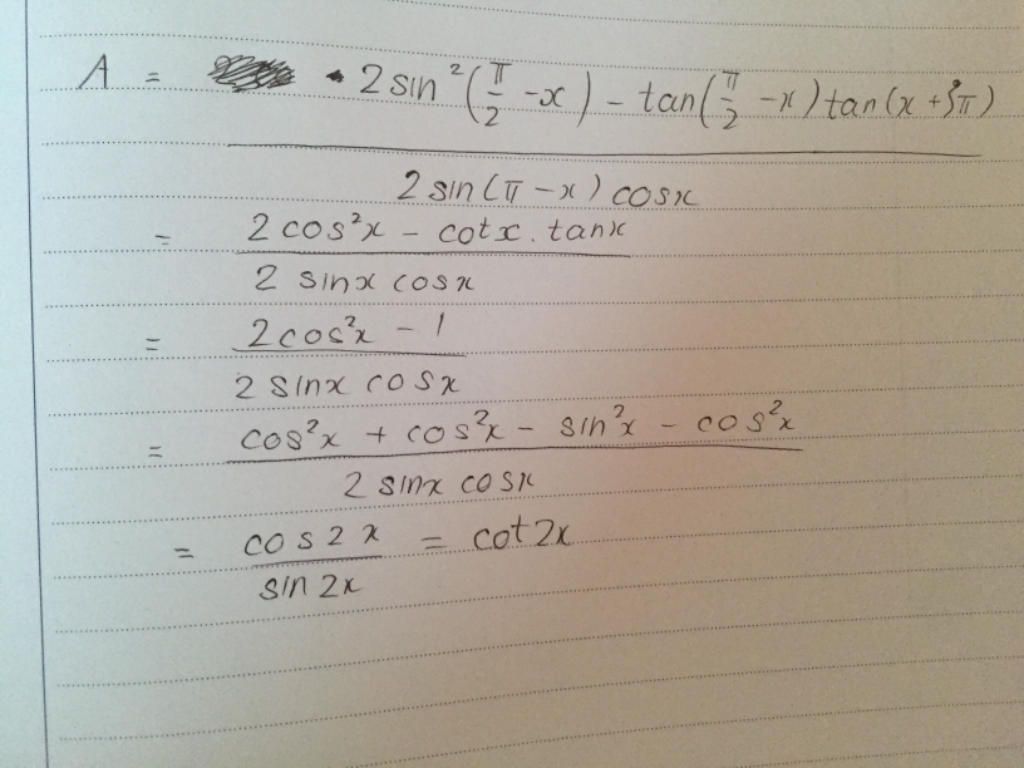 A = 2 sin²(π/2 - x) - tan(π/2 - x) tan(x + 5π)
2 sin(π - x) cosx
= 2 cos²x - cotx . tanx
2 sinx cosx
= 2cos²x - 1
2 sinx cosx
= cos²x + cos²x - sin²x - cos²x
2 sinx cosx
= cos2x = cot2x
sin 2x